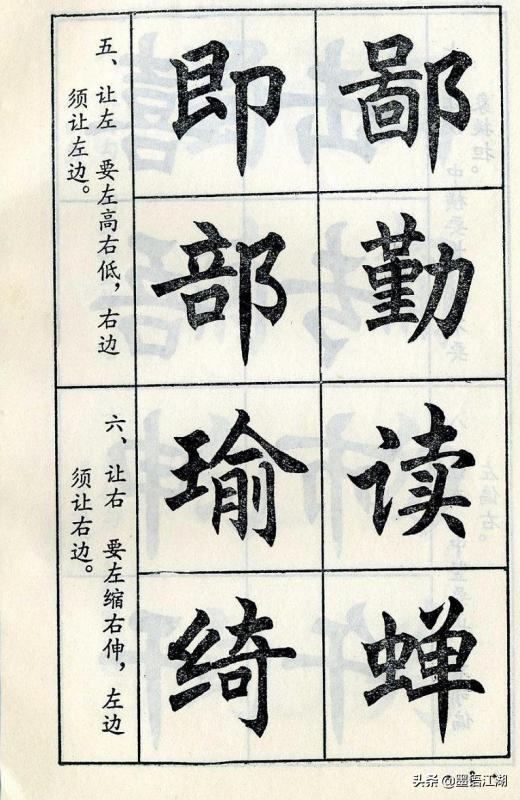 五、让左 要左高右低，右边
须让左边。
即 鄙
部 勤
六、让右 要左缩右伸，左边
须让右边。
瑜 读
绮 蝉
头条 @墨语江湖